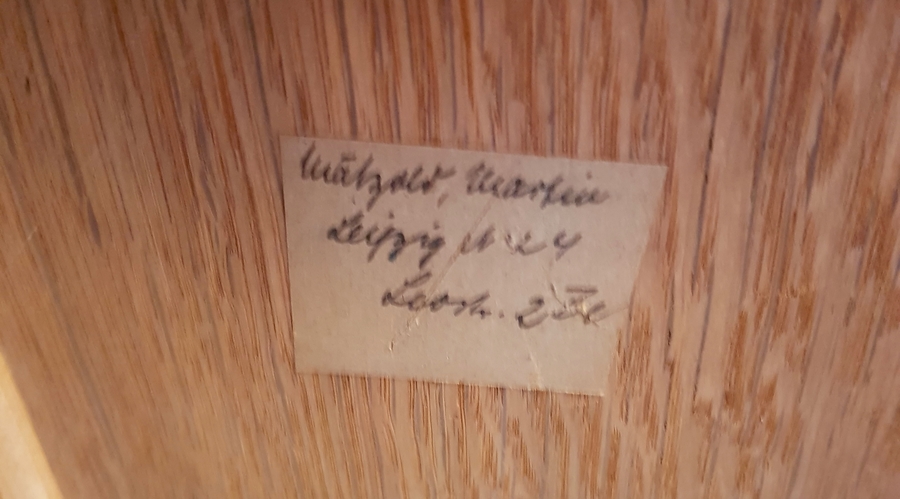 Mätzold, Martin
Leipzig N 24
Leostr. 2